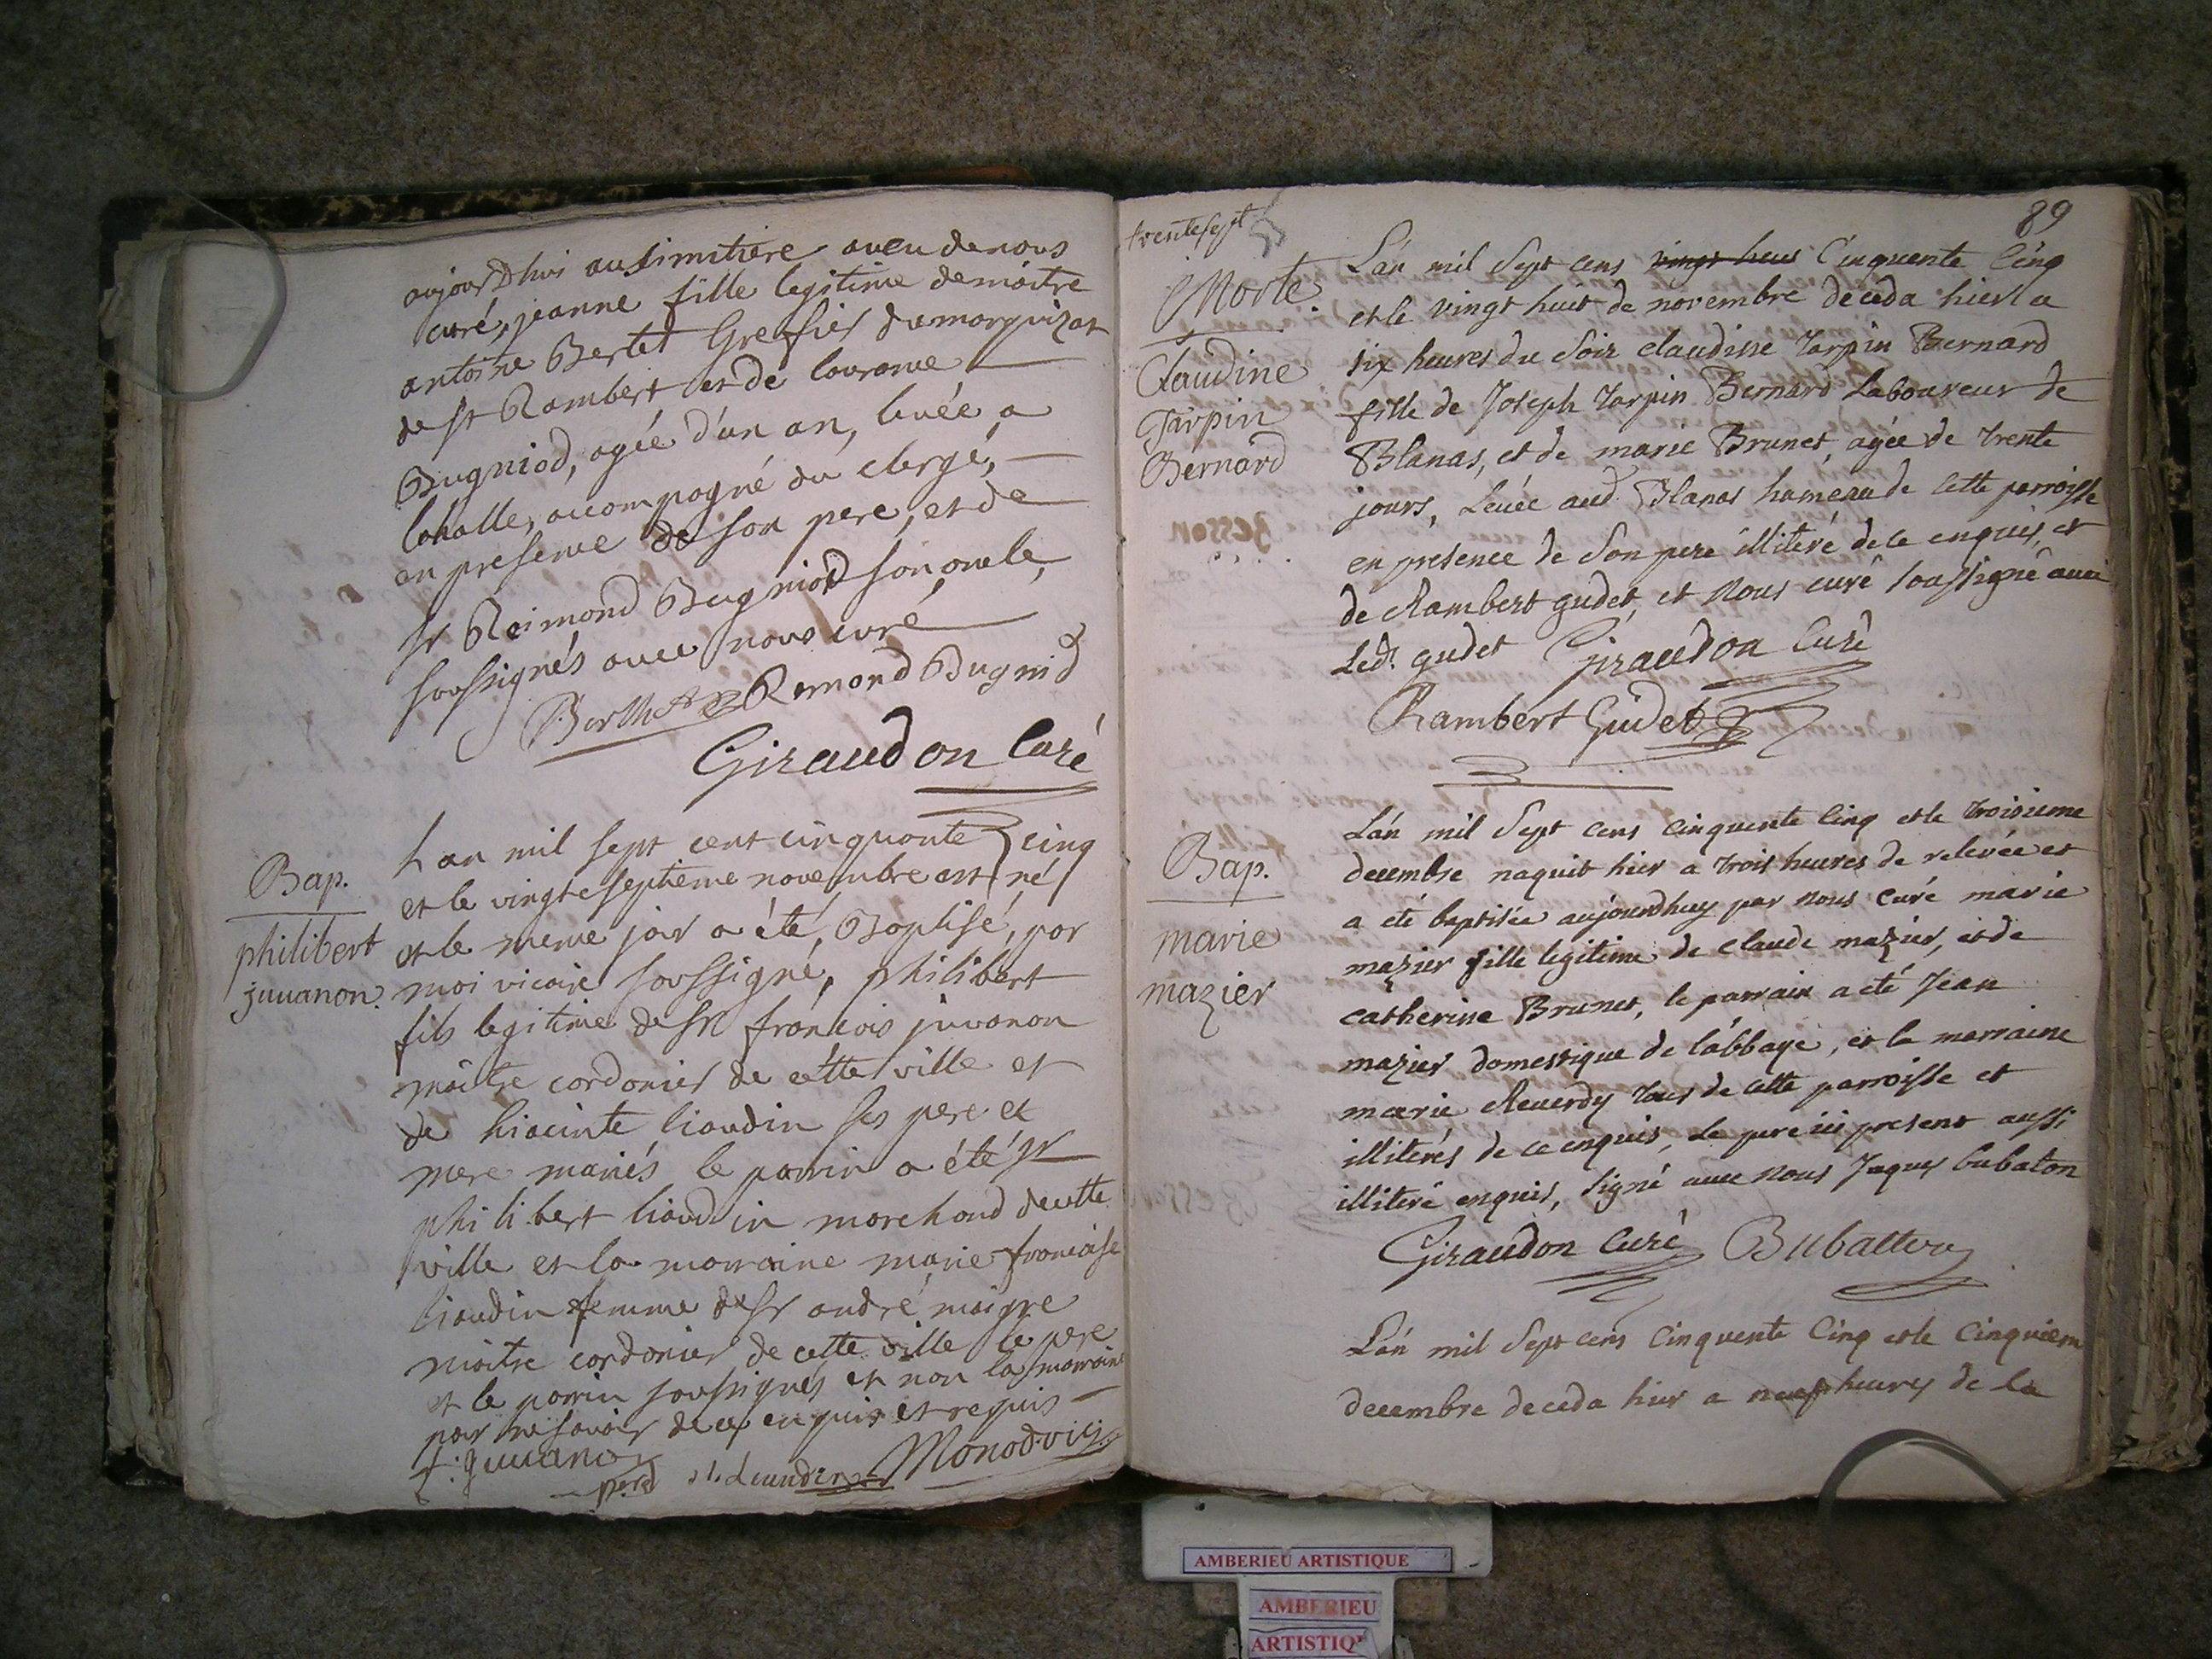 aujourDhui au simitiere aveu de nous
curé, jeanne fille legitime de maitre
antoine Bertet Greffier du marquizat
de st Rambert et de louronne
Bugniod, agée d'un an, levée a
lahalle, accompagné du clergé,
en presence de son pere, et de
sr Reimond Bugniod son oncle,
soussignés avec nous curé
Berthet Remond Bugniod
Giraudon Curé
Bap.
philibert
juuanon.
Lan mil sept cent cinquante cinq
et le vingt septieme novembre est né
et le meme jour a été Baptisé, par
moi vicaire soussigné, philibert
fils legitime de sr francois juvanon
maitre cordonier de cette ville et
de hiacinte liaudin ses pere et
mere mariés le parrin a été sr
philibert liaudin marchand de cette
ville et la marraine marie francoise
liaudin femme de sr andré maigre
maitre cordonier de cette ville le pere
et le parrin soussignés et non la marraine
pour ne savoir de ce enquis et requis
f. juuanon
pere Liaudin Monod vic.
trente sept
89
Morte
Claudine
Tarpin
Bernard
L'an mil Sept cens vingt huit Cinquante Cinq
et le vingt huit de novembre deceda hier a
six heures du Soir claudine Tarpin Bernard
fille de Joseph Tarpin Bernard Laboureur de
Blanas, et de marie Brunet, agée de trente
jours, Levée aud. Blanas hameau de cette parroisse
en presence de Son pere illiteré de ce enquis, et
de Rambert gudet, et Nous curé soussigné avec
Led. gudet Giraudon Curé
Rambert Gudet
Bap.
marie
mazier
L'an mil Sept cens cinquante Cinq et le troisieme
decembre naquit hier a trois heures de relevée et
a été baptisée aujourdhuy par nous curé marie
mazier fille legitime de Claude mazier, et de
catherine Brunet, le parrain a été Jean
mazier domestique de l'abbaye, et la marraine
marie Reuerdy tous de cette parroisse et
illiterés de ce enquis, Le pere ici present aussi
illiteré enquis, Signé avec nous Jaques bubaton
Giraudon Curé Bubatton
L'an mil Sept cens Cinquante Cinq et le Cinquiem
decembre deceda hier a neuf heures de la
AMBERIEU ARTISTIQUE
AMBERIEU
ARTISTIQU